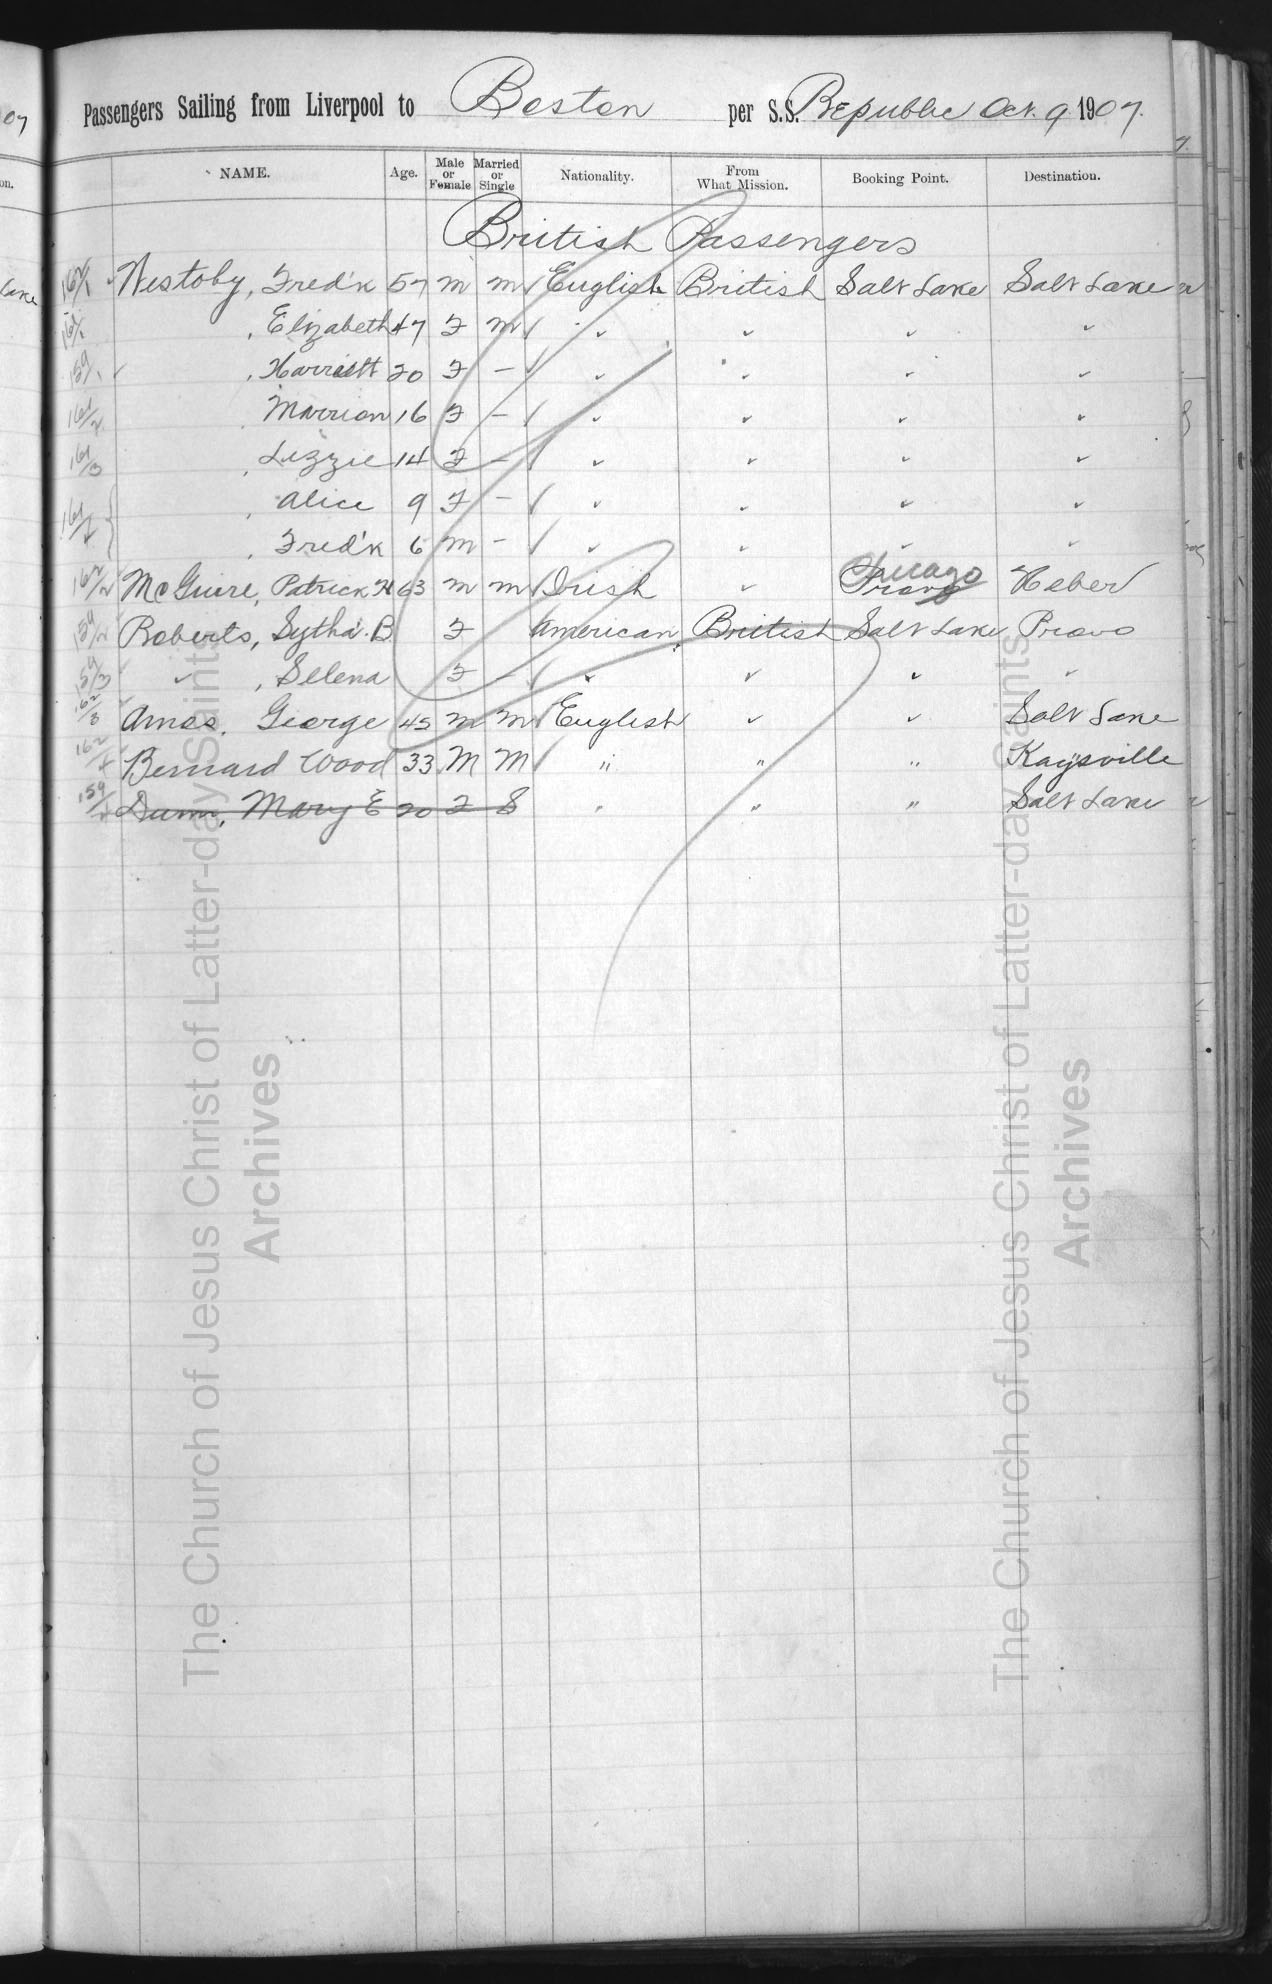 Passengers Sailing from Liverpool to Boston per S.S. Republic Oct. 9 1907.
NAME. Age. Male or Female Married or Single Nationality. From What Mission. Booking Point. Destination.
British Passengers
162/1 Westoby, Fred'k 57 m m English British Salt Lake Salt Lake
161/1 , Elizabeth 47 F m √ " " " "
159/1 , Harriett 20 F - √ " " " "
161/2 , Marrion 16 F - √ " " " "
161/3 , Lizzie 14 F - √ " " " "
161/4 , Alice 9 F - √ " " " "
, Fred'k 6 m - √ " " " "
162/2 McGuire, Patrick H 63 m m Irish " Chicago Provo Heber
159/2 Roberts, Sytha B F American British Salt Lake Provo
159/3 " , Selena F - " " " "
162/3 Ames, George 45 m m English " " Salt Lake
162/4 Bernard Wood 33 M M √ " " " Kaysville
159/4 Dunn, Mary E 20 F S " " " Salt Lake
The Church of Jesus Christ of Latter-day Saints
Archives
The Church of Jesus Christ of Latter-day Saints
Archives